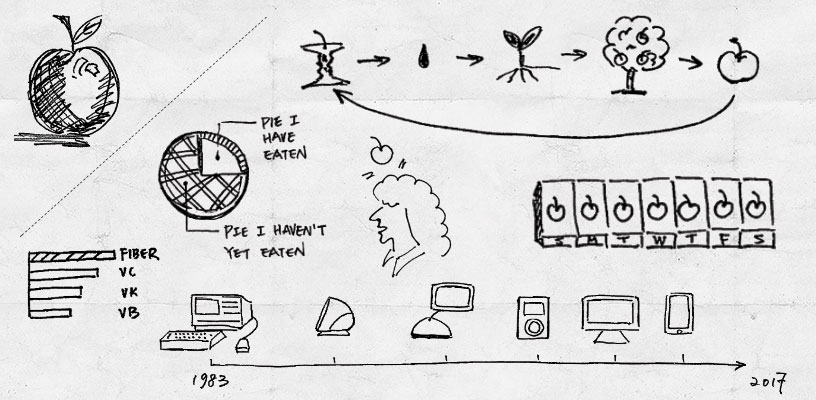 PIE I
HAVE
EATEN
PIE I HAVEN'T
YET EATEN
FIBER
VC
VK
VB
S M T W T F S
1983
2017